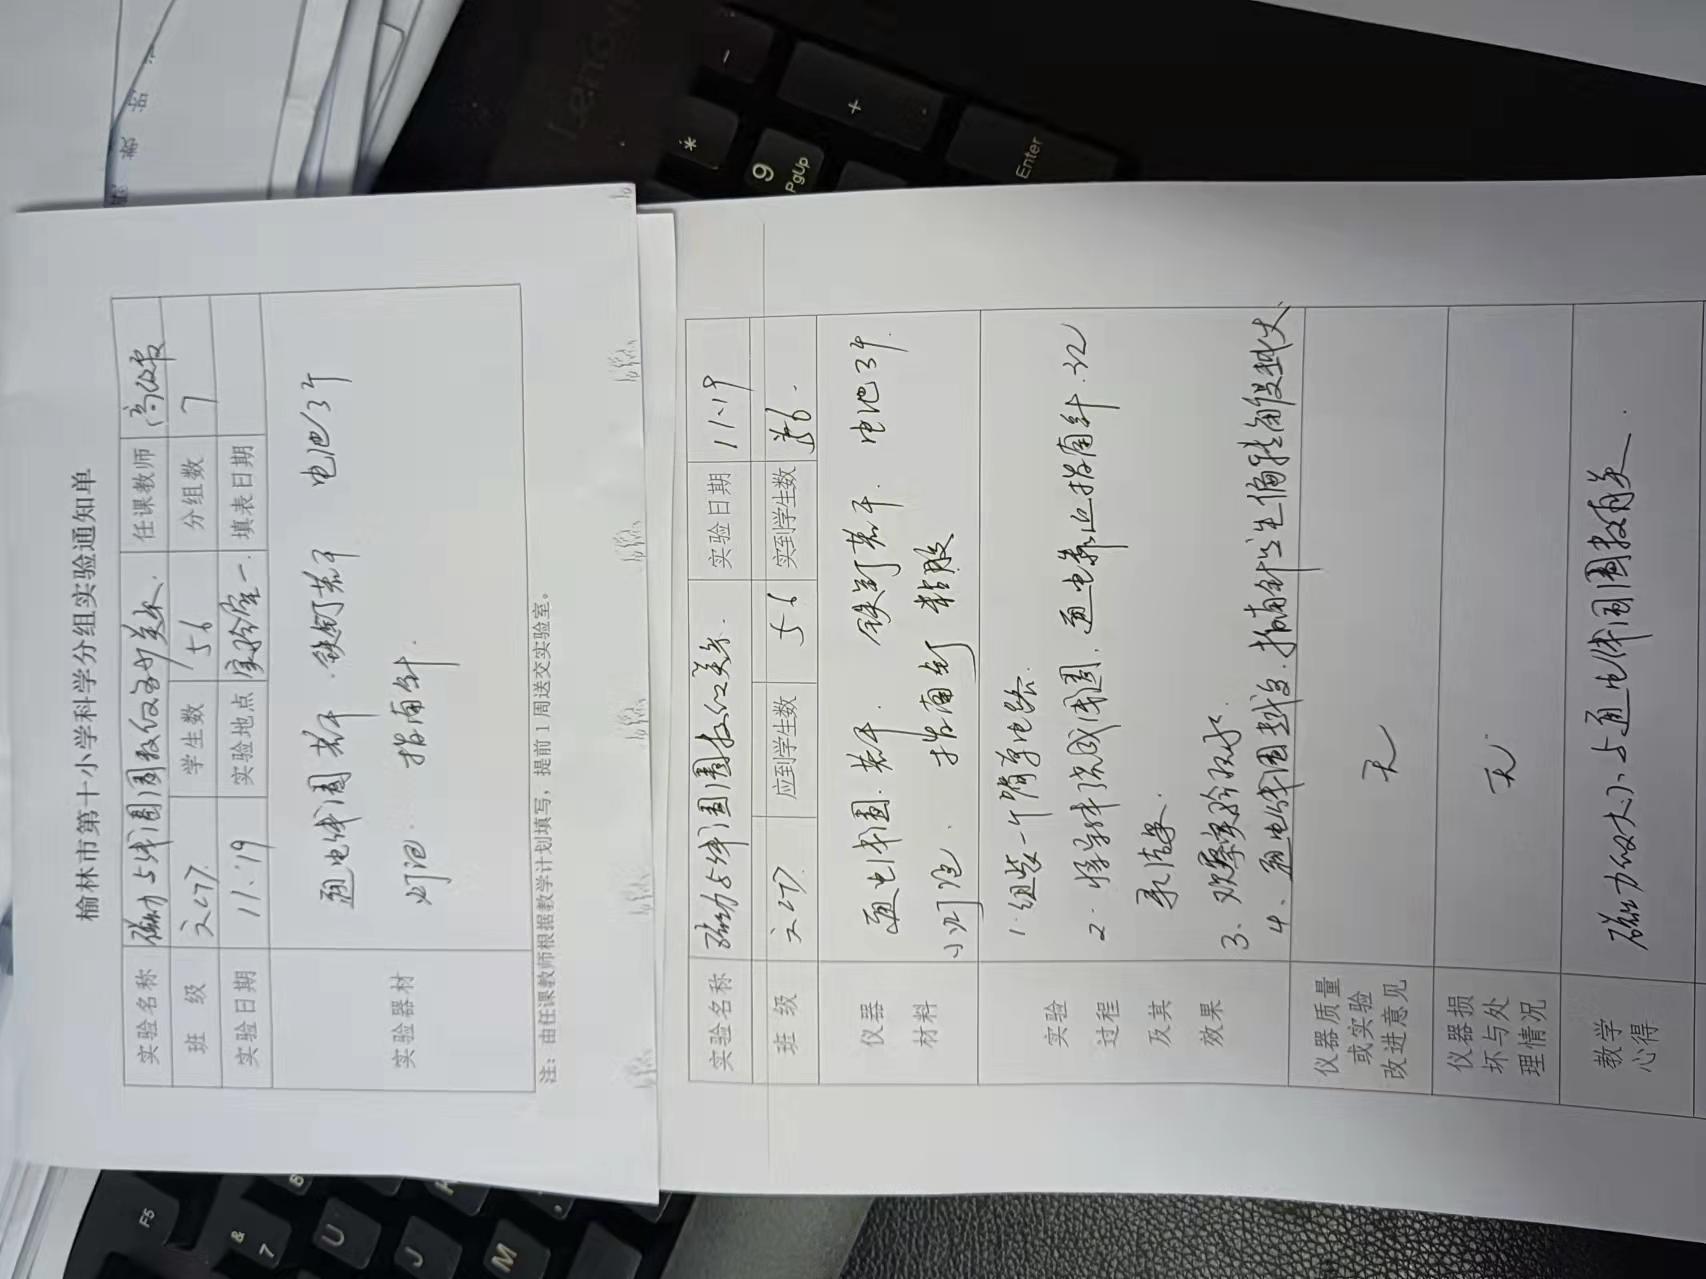 榆林市第十小学科学分组实验通知单
实验名称 磁力与线圈圈数的关系 任课教师
班 级 学生数 56 分组数 7
实验日期 11.19 实验地点 实验室一 填表日期
实验器材
通电线圈 若干 铁钉若干 电池3个
灯泡 指南针
注：由任课教师根据教学计划填写，提前1周送交实验室。
实验名称 磁力与线圈圈数的关系 实验日期 11.19
班 级 应到学生数 56 实到学生数 56
仪器
材料
通电线圈 若干 铁钉若干 电池3个
小灯泡 指南针
实验
过程
及其
效果
1.组装一个简单电路
2.将导线绕成线圈，通电靠近指南针.记
录结果.
3.观察实验
4、通电线圈越多.指南针发生偏转角度越大
仪器质量
或实验
改进意见
无
仪器损
坏与处
理情况
无
教学
心得
磁力的大小与通电线圈圈数有关
Lenovo
-
+
*
9
PgUp
Enter
F5
&
7
8
U
J
M